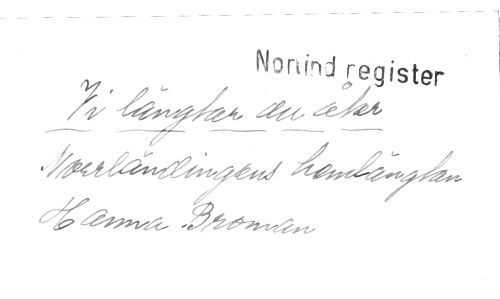 Nomind register
Vi längtar du åter
Norrländingens hemlängtan
Hanna Broman